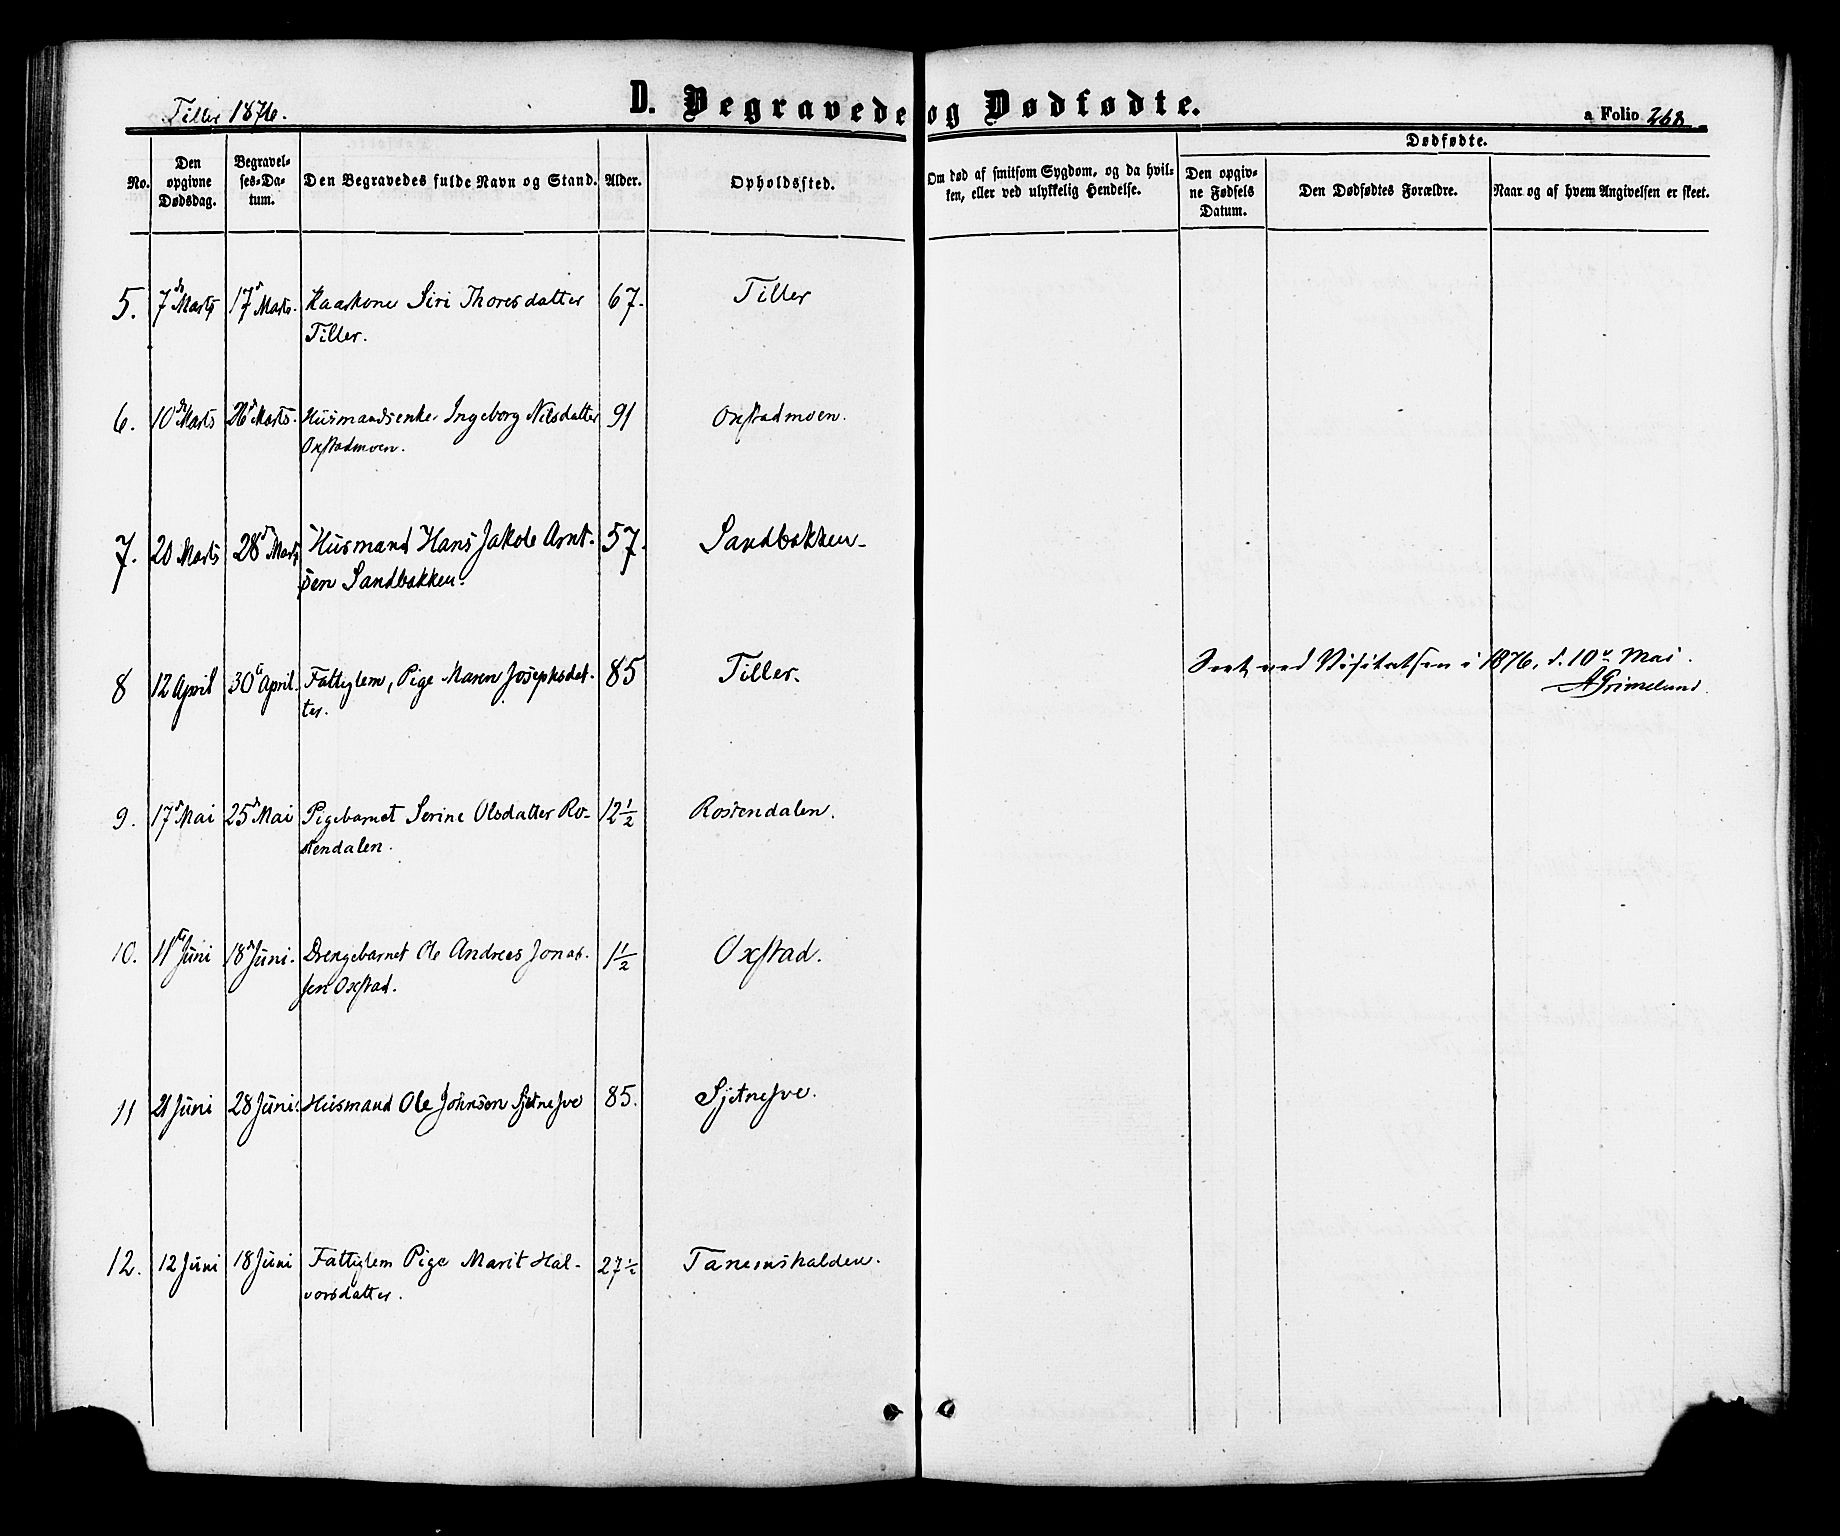 Tiller 1876.
D. Begravede og Dødfødte.
a Folio 268
Dødfødte.
No.
Den opgivne Dødsdag.
Begravelses-Datum.
Den Begravedes fulde Navn og Stand.
Alder.
Opholdssted.
Om død af smitsom Sygdom, og da hvilken, eller ved ulykkelig Hendelse.
Den opgivne Fødsels Datum.
Den Dødfødtes Forældre.
Naar og af hvem Angivelsen er skeet.
5. 7de Marts 17d Marts. Kaarkone Siri Thoresdatter 67. Tiller
Tiller.
6. 10de Marts 26d Marts. Husmandsenke Ingeborg Nilsdatter 91 Oxstadmoen.
Oxstadmoen.
7. 20 Marts 28d Marts Husmand Hans Jakob Arnt- 57. Sandbakken
sen Sandbakken.
8 12 April 30te April. Fattiglem, Pige Maren Josephsdat- 85 Tiller.
ter.
Seet ved Visitatsen i 1876, d. 10de Mai.
A Grimelund.
9. 17d Mai 25d Mai Pigebarnet Serine Olsdatter Ro- 12 1/2 Rostendalen.
stendalen.
10. 11te Juni 18d Juni. Drengebarnet Ole Andreas Jonas- 1 1/2 Oxstad.
sen Oxstad.
11 21 Juni 28 Juni. Husmand Ole Johnsen Sjetnesve 85. Sjetnesve.
12. 12 Juni 18 Juni Fattiglem Pige Marit Hal- 27 1/2 Tanemshalden.
vorsdatter.